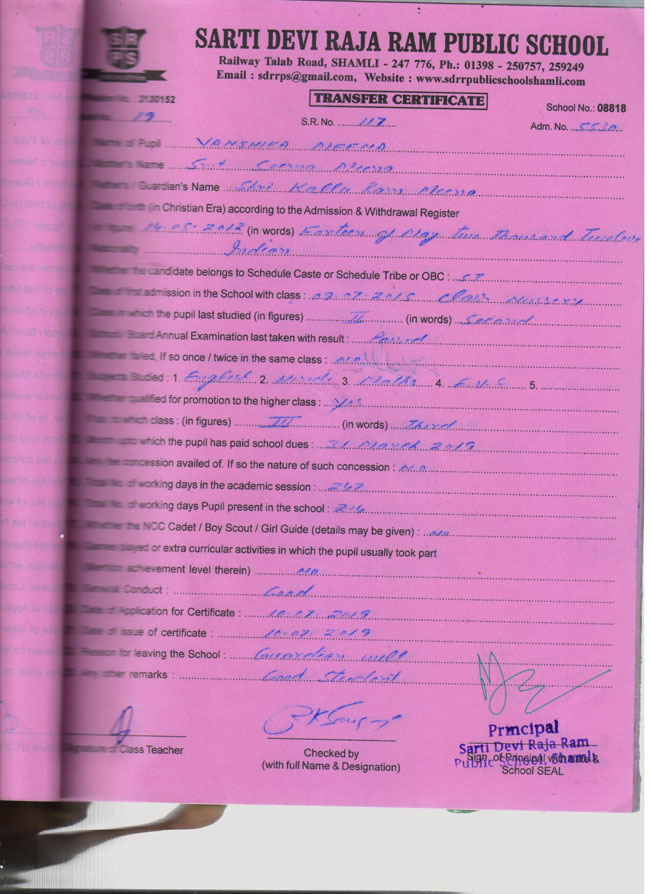 SARTI DEVI RAJA RAM PUBLIC SCHOOL
Railway Talab Road, SHAMLI - 247 776, Ph.: 01398 - 250757, 259249
Email : sdrrps@gmail.com, Website : www.sdrrpublicschoolshamli.com
SRPS
No. : 2130152
TRANSFER CERTIFICATE
School No.: 08818
19
S.R. No. 117
Adm. No. 5530
Name of Pupil VANSHIKA MEENA
Mother's Name Smt Seema Meena
Father's / Guardian's Name Shri Kallu Ram Meena
Date of birth (in Christian Era) according to the Admission & Withdrawal Register
(in figure) 14-05-2012 (in words) Forteen of May two Thousand Twelve
Nationality Indian
Whether the candidate belongs to Schedule Caste or Schedule Tribe or OBC : ST
Date of first admission in the School with class : 09-07-2015 Class Nursery
Class in which the pupil last studied (in figures) II (in words) Second
School / Board Annual Examination last taken with result : Passed
Whether failed, If so once / twice in the same class : No
Subjects Studied : 1. English 2. Hindi 3. Maths 4. E.V.S 5.
Whether qualified for promotion to the higher class : Yes
If so, to which class : (in figures) III (in words) Third
Month upto which the pupil has paid school dues : 31 March 2019
Any fee concession availed of. If so the nature of such concession : N.O
Total No. of working days in the academic session : 247
Total No. of working days Pupil present in the school : 214
Whether the NCC Cadet / Boy Scout / Girl Guide (details may be given) : No
Games played or extra curricular activities in which the pupil usually took part
(Mention achievement level therein) No
General Conduct : Good
Date of Application for Certificate : 10-07-2019
Date of issue of certificate : 10-07-2019
Reason for leaving the School : Guardian will
Any other remarks : Good Student
Signature of Class Teacher
Checked by
(with full Name & Designation)
Principal
Sarti Devi Raja Ram
Public School, Shamli
Sign. of Principal with date &
School SEAL